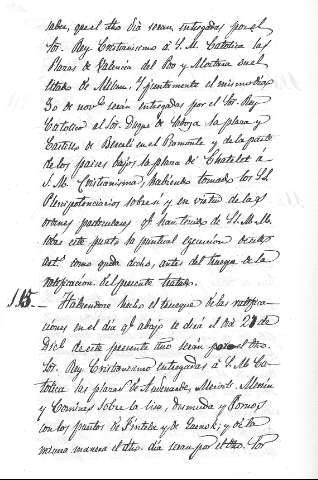 saber, que el dho dia seran entregadas por el
Sor. Rey Cristianismo à S. M. Catolica las
Plazas de Valencia del Poo y Mortaria en el
Estado de Milan. Y juntamente el mismo dia
30 de novre. seran entregadas por el Sor. Rey
Catolico al Sor. Duque de Saboya la plaza y
Castillo de Berceli en el Piamonte y de la parte
de los paises bajos la plaza de Chatelet a
S. M. Cristianisma, habiendo tomado los SS.
Plenipotenciarios sobre si y en virtud de las
ordenes particulares qe. han tenido de SS. MM.
sobre este punto la puntual ejecucion de este
artº. como queda dicho, antes del trueque de la
ratificacion del presente tratado.
115._ Habiendose hecho el trueque de las ratifica-
ciones en el dia qe. abajo se dirá el dia 27 de
Dice. de este presente año seran por el dho.
Sor. Rey Cristianismo entregadas à S. M. Ca-
tolica las plazas de Audenarde, Menin
y Comines sobre la Lisa, Dixmuda y Fornos
con los puestos de Fintela y de Quenok; y de la
misma manera el dho. dia seran por el dho. Sor